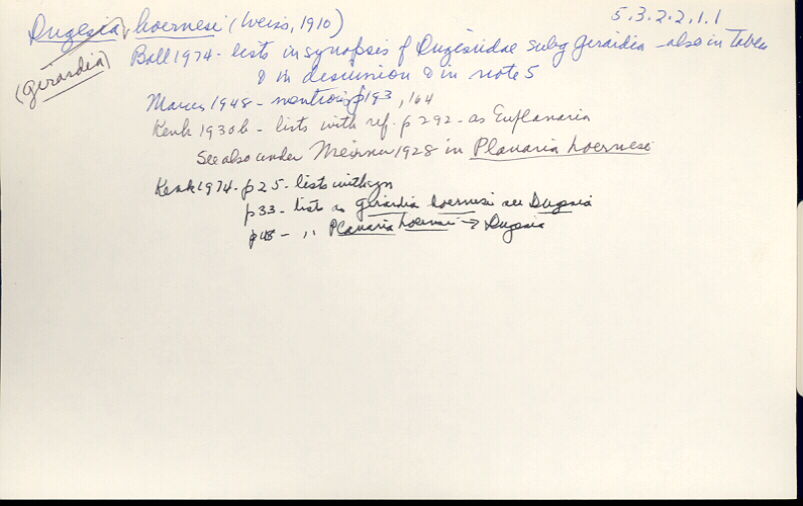 5.3.2.2.1.1
Dugesia hoernesi (Weiss, 1910)
(Girardia)
Ball 1974 - lists in synopsis of Dugesiidae subg Girardia - also in Table
& in discussion & in note 5
Marcus 1948 - mentions p 193, 164
Kenk 1930b - lists with ref. p 292 - as Euplanaria
See also under Meixner 1928 in Planaria hoernesi
Kenk 1974 - p 25 - lists with syn
p 33 - lists as Girardia hoernesi see Dugesia
p 48 - ,, Planaria hoernesi → Dugesia